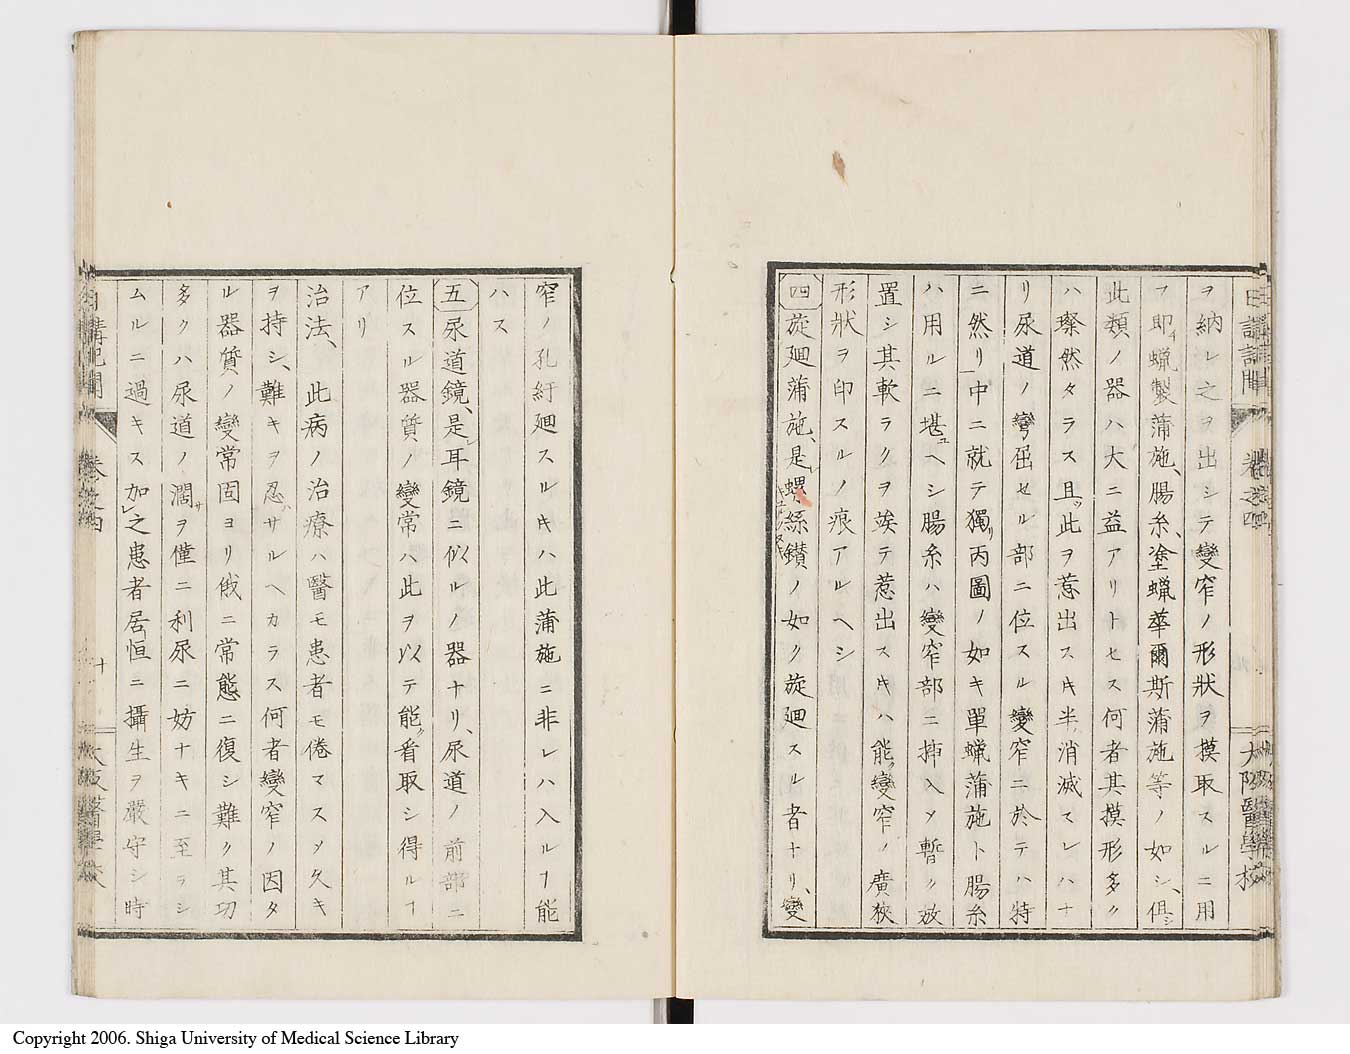 日講記聞 卷之四 大阪醫學校
ヲ納レ之ヲ出シテ變窄ノ形狀ヲ摸取スルニ用
フ即チ蝋製蒲施、腸糸、塗蝋華爾斯蒲施等ノ如シ、俱シ
此類ノ器ハ大ニ益アリトセス何者其摸形多ク
ハ璨然タラス且ツ此ヲ惹出スキ半ハ消滅スレハナ
リ尿道ノ彎屈セル部ニ位スル變窄ニ於テハ特
ニ然リ」中ニ就テ獨リ丙圖ノ如キ單蝋蒲施ト腸糸
ハ用ルニ堪ユヘシ腸糸ハ變窄部ニ挿入メ暫ク放
置シ其軟ラクヲ竢テ惹出スキハ能ク變窄ノ廣狹
形狀ヲ印スルノ痕アルヘシ
四 旋廻蒲施、是レ螺絲鑚ノ如ク旋廻スル者ナリ、變
窄ノ孔紆廻スルキハ此蒲施ニ非レハ入ルヿ能
ハス
五 尿道鏡、是レ耳鏡ニ似ルノ器ナリ、尿道ノ前部ニ
位スル器質ノ變常ハ此ヲ以テ能ク看取シ得ルヿ
アリ
治法、此病ノ治療ハ醫モ患者モ倦マスメ久キ
ヲ持シ、難キヲ忍ハサルヘカラス何者變窄ノ因タ
ル器質ノ變常固ヨリ俄ニ常態ニ復シ難ク其功
多クハ尿道ノ濶サヲ僅ニ利尿ニ妨ナキニ至ラシ
ムルニ過キス加レ之患者居恒ニ攝生ヲ嚴守シ時
日講記聞 卷之四 十 大阪醫學校
Copyright 2006. Shiga University of Medical Science Library